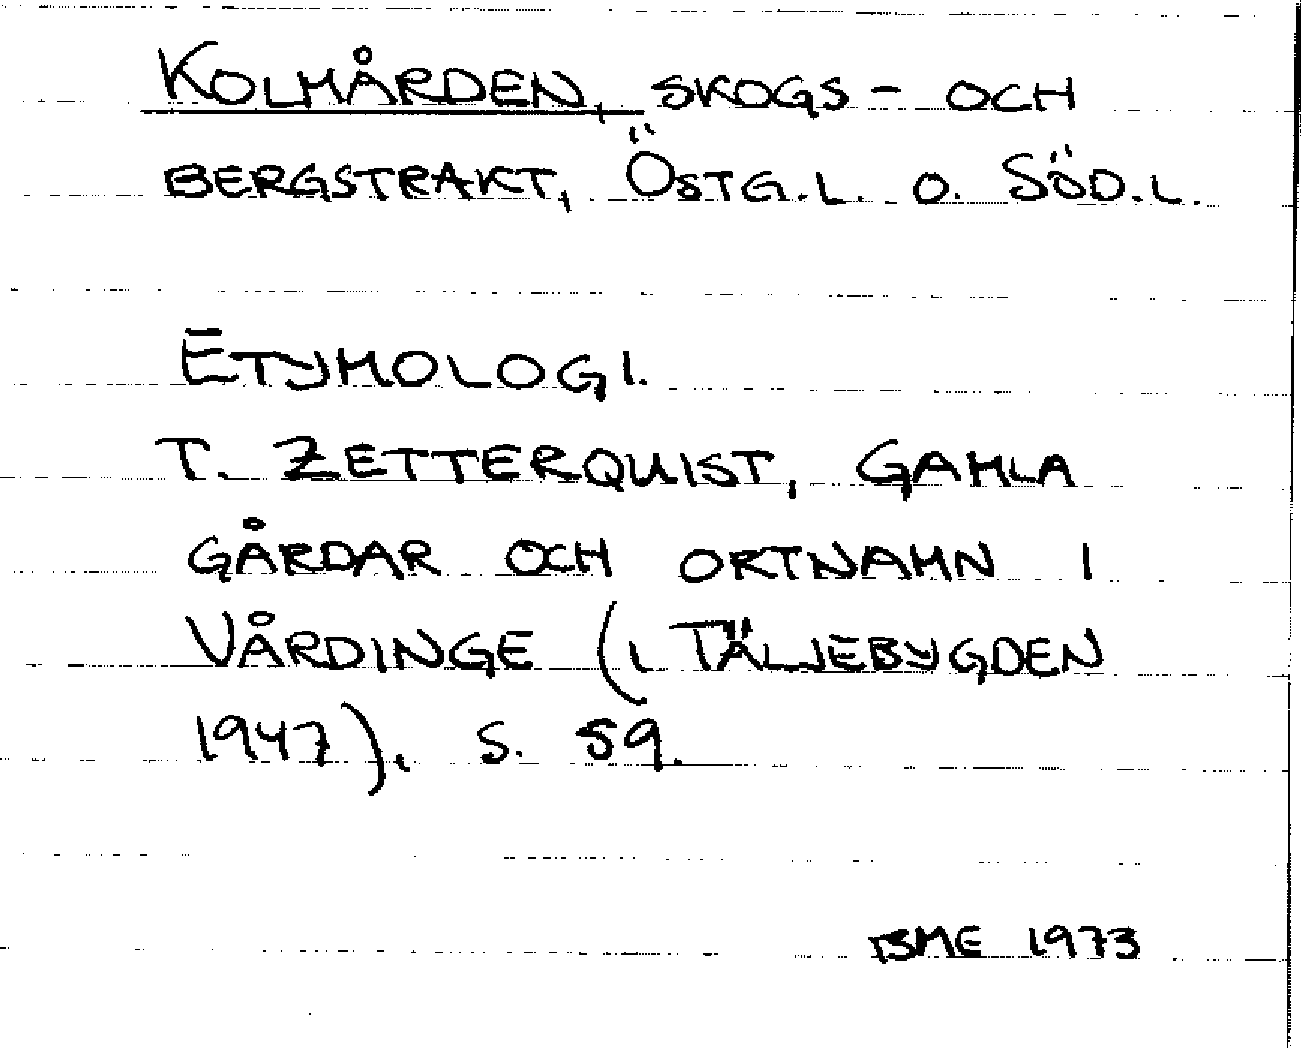 KOLMÅRDEN, SKOGS- OCH
BERGSTRAKT, ÖSTG.L. O. SÖD.L.
ETYMOLOGI.
T. ZETTERQUIST, GAMLA
GÅRDAR OCH ORTNAMN I
VÅRDINGE (I TÄLJEBYGDEN
1947), S. 59.
BME 1973